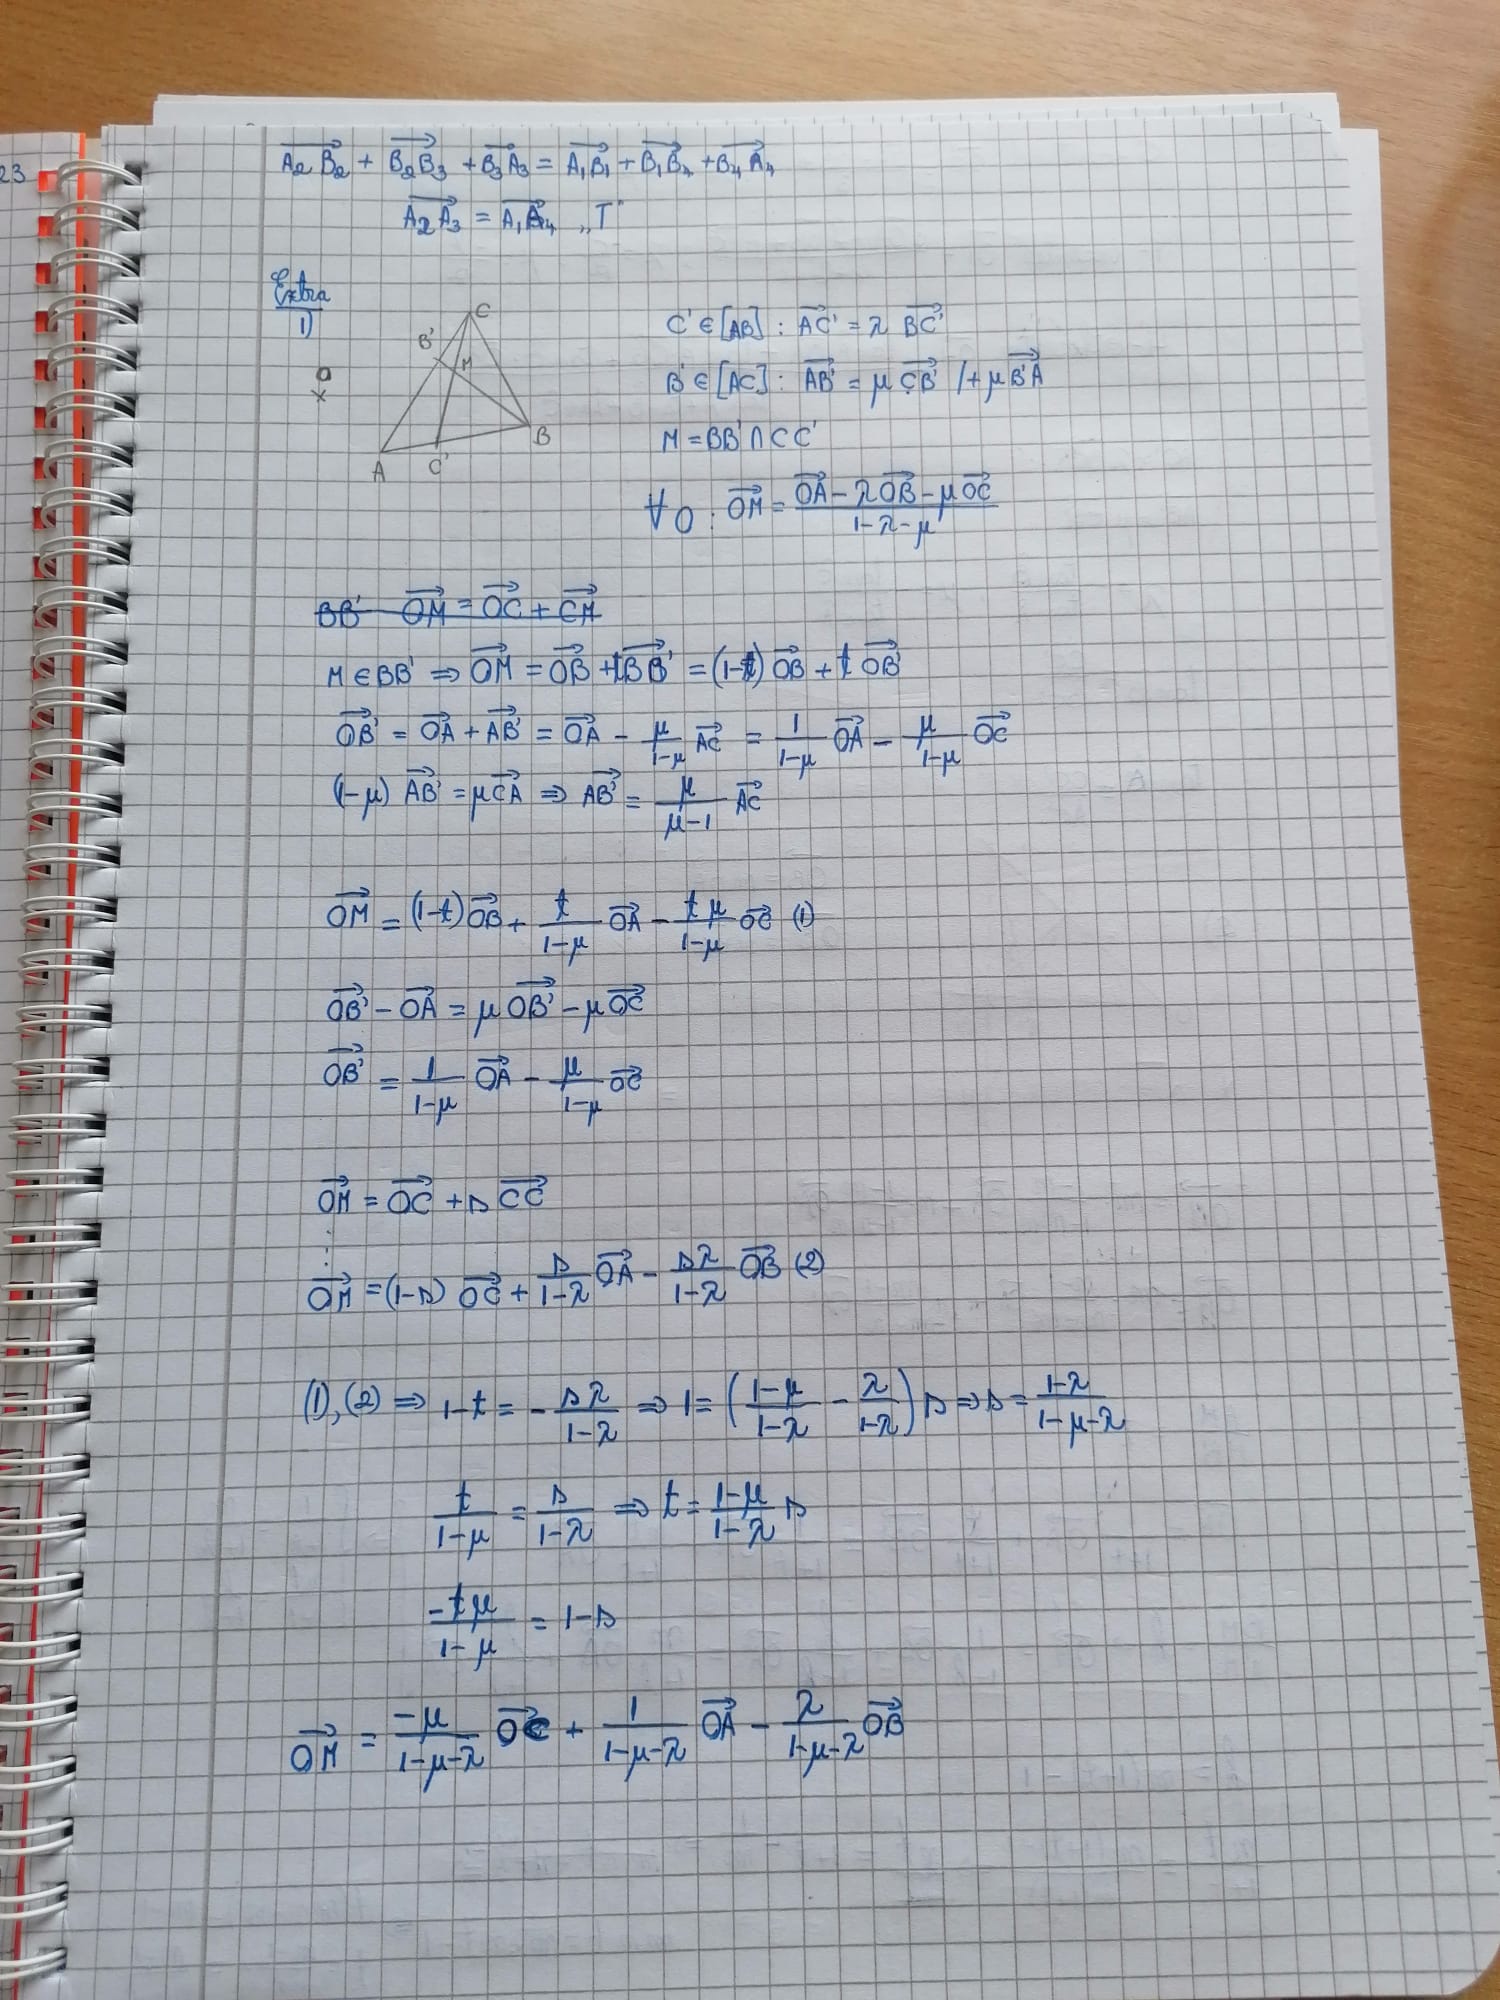 23
A₂B₂⃗ + B₂B₃⃗ + B₃A₃⃗ = A₁B₁⃗ + B₁B₄⃗ + B₄A₄⃗
A₂A₃⃗ = A₁A₄⃗ „T"
Extra
1)
O
×
C
B'
M
A
C'
B
C' ∈ [AB] : AC'⃗ = λ BC'⃗
B' ∈ [AC] : AB'⃗ = μ CB'⃗ /+ μ B'A⃗
M = BB' ∩ CC'
∀ O : OM⃗ = (OA⃗ − λ OB⃗ − μ OC⃗) / (1−λ−μ)
BB' OM⃗ = OC⃗ + CM⃗
M ∈ BB' ⇒ OM⃗ = OB⃗ + t BB'⃗ = (1−t) OB⃗ + t OB'⃗
OB'⃗ = OA⃗ + AB'⃗ = OA⃗ − μ/(1−μ) AC⃗ = 1/(1−μ) OA⃗ − μ/(1−μ) OC⃗
(1−μ) AB'⃗ = μ CA⃗ ⇒ AB'⃗ = μ/(μ−1) AC⃗
OM⃗ = (1−t) OB⃗ + t/(1−μ) OA⃗ − tμ/(1−μ) OC⃗ (1)
OB'⃗ − OA⃗ = μ OB'⃗ − μ OC⃗
OB'⃗ = 1/(1−μ) OA⃗ − μ/(1−μ) OC⃗
OM⃗ = OC⃗ + s CC'⃗
⋮
OM⃗ = (1−s) OC⃗ + s/(1−λ) OA⃗ − sλ/(1−λ) OB⃗ (2)
(1), (2) ⇒ 1−t = − sλ/(1−λ) ⇒ 1 = ((1−μ)/(1−λ) − λ/(1−λ)) s ⇒ s = (1−λ)/(1−μ−λ)
t/(1−μ) = s/(1−λ) ⇒ t = (1−μ)/(1−λ) s
−tμ/(1−μ) = 1−s
OM⃗ = −μ/(1−μ−λ) OC⃗ + 1/(1−μ−λ) OA⃗ − λ/(1−μ−λ) OB⃗